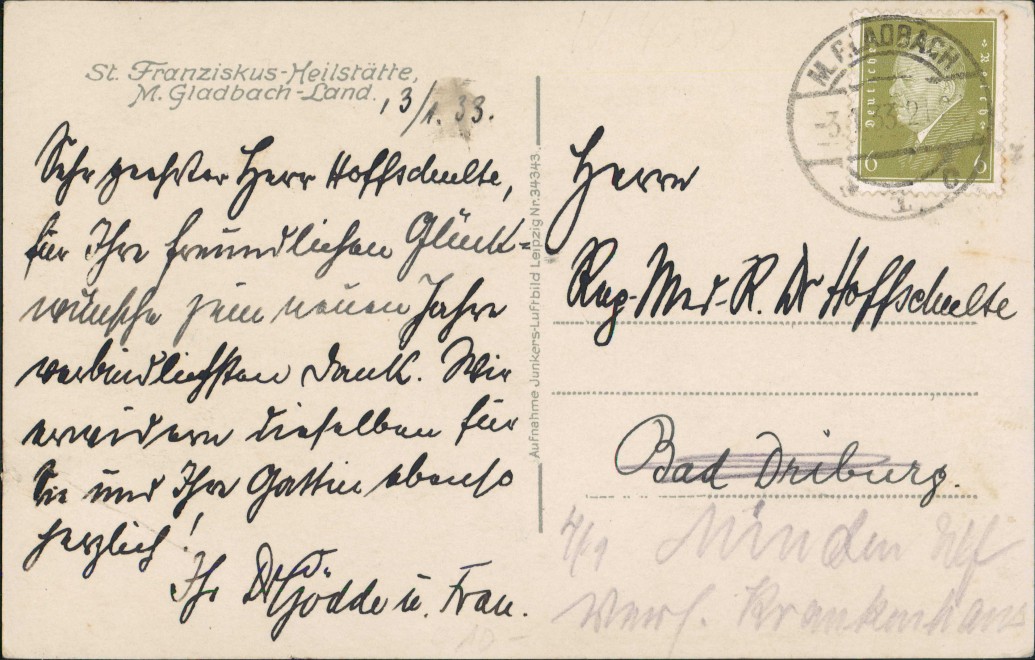 St. Franziskus-Heilstätte,
M. Gladbach-Land.
, 3/1. 33.
Sehr geehrter Herr Hoffschulte,
für Ihre freundlichen Glück-
wünsche zum neuen Jahre
verbindlichsten Dank. Wir
erwidern dieselben für
Sie und Ihre Gattin ebenso
herzlich!
Ihr Dr Gödde u. Frau.
Aufnahme Junkers-Luftbild Leipzig Nr. 34343.
M. GLADBACH
-3.1.33.21
Deutsches Reich
6 6
Herrn
Reg-Med-R. Dr Hoffschulte
Bad Driburg.
4/1 Minden
Krankenhaus